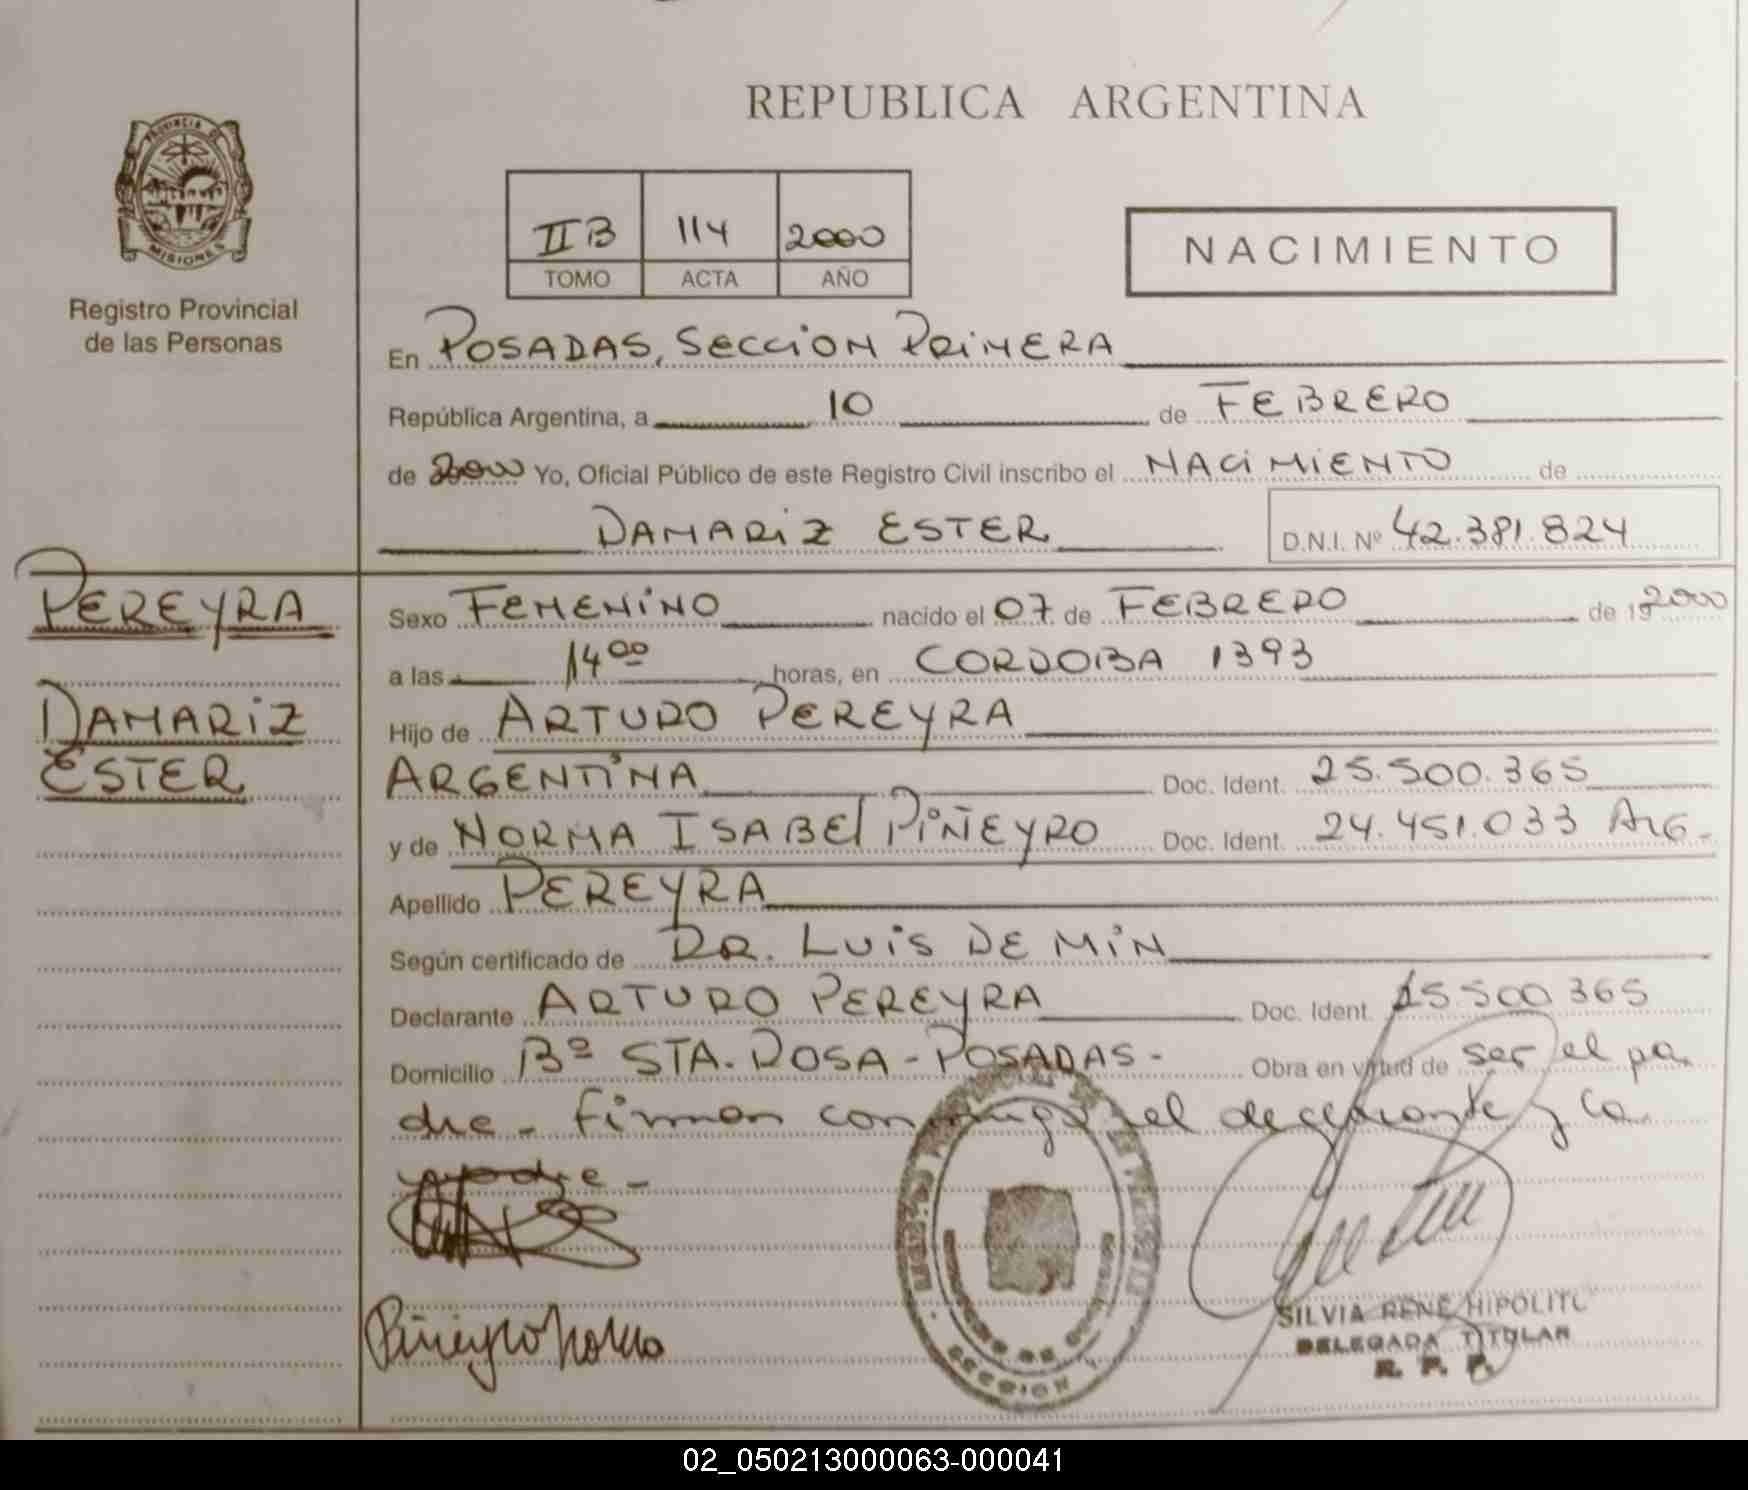 REPUBLICA ARGENTINA
PROVINCIA DE
MISIONES
Registro Provincial
de las Personas
II B 114 2000
TOMO ACTA AÑO
NACIMIENTO
En POSADAS, SECCION PRIMERA
República Argentina, a 10 de FEBRERO
de 2000 Yo, Oficial Público de este Registro Civil inscribo el NACIMIENTO de
DAMARIZ ESTER D.N.I. Nº 42.381.824
PEREYRA
DAMARIZ
ESTER
Sexo FEMENINO nacido el 07 de FEBRERO de 19 2000
a las 14 00 horas, en CORDOBA 1393
Hijo de ARTURO PEREYRA
ARGENTINA Doc. Ident. 25.500.365
y de NORMA ISABEl PIÑEYRO Doc. Ident. 24.451.033 ARG.
Apellido PEREYRA
Según certificado de DR. LUIS DE MIN
Declarante ARTURO PEREYRA Doc. Ident. 25.500.365
Domicilio Bº STA. ROSA - POSADAS - Obra en virtud de ser el pa
dre - firman conmigo el declarante y la
madre -
Piñeyro Norma
SECCION
SILVIA RENE HIPOLITO
DELEGADA TITULAR
R. P. P.
02_050213000063-000041